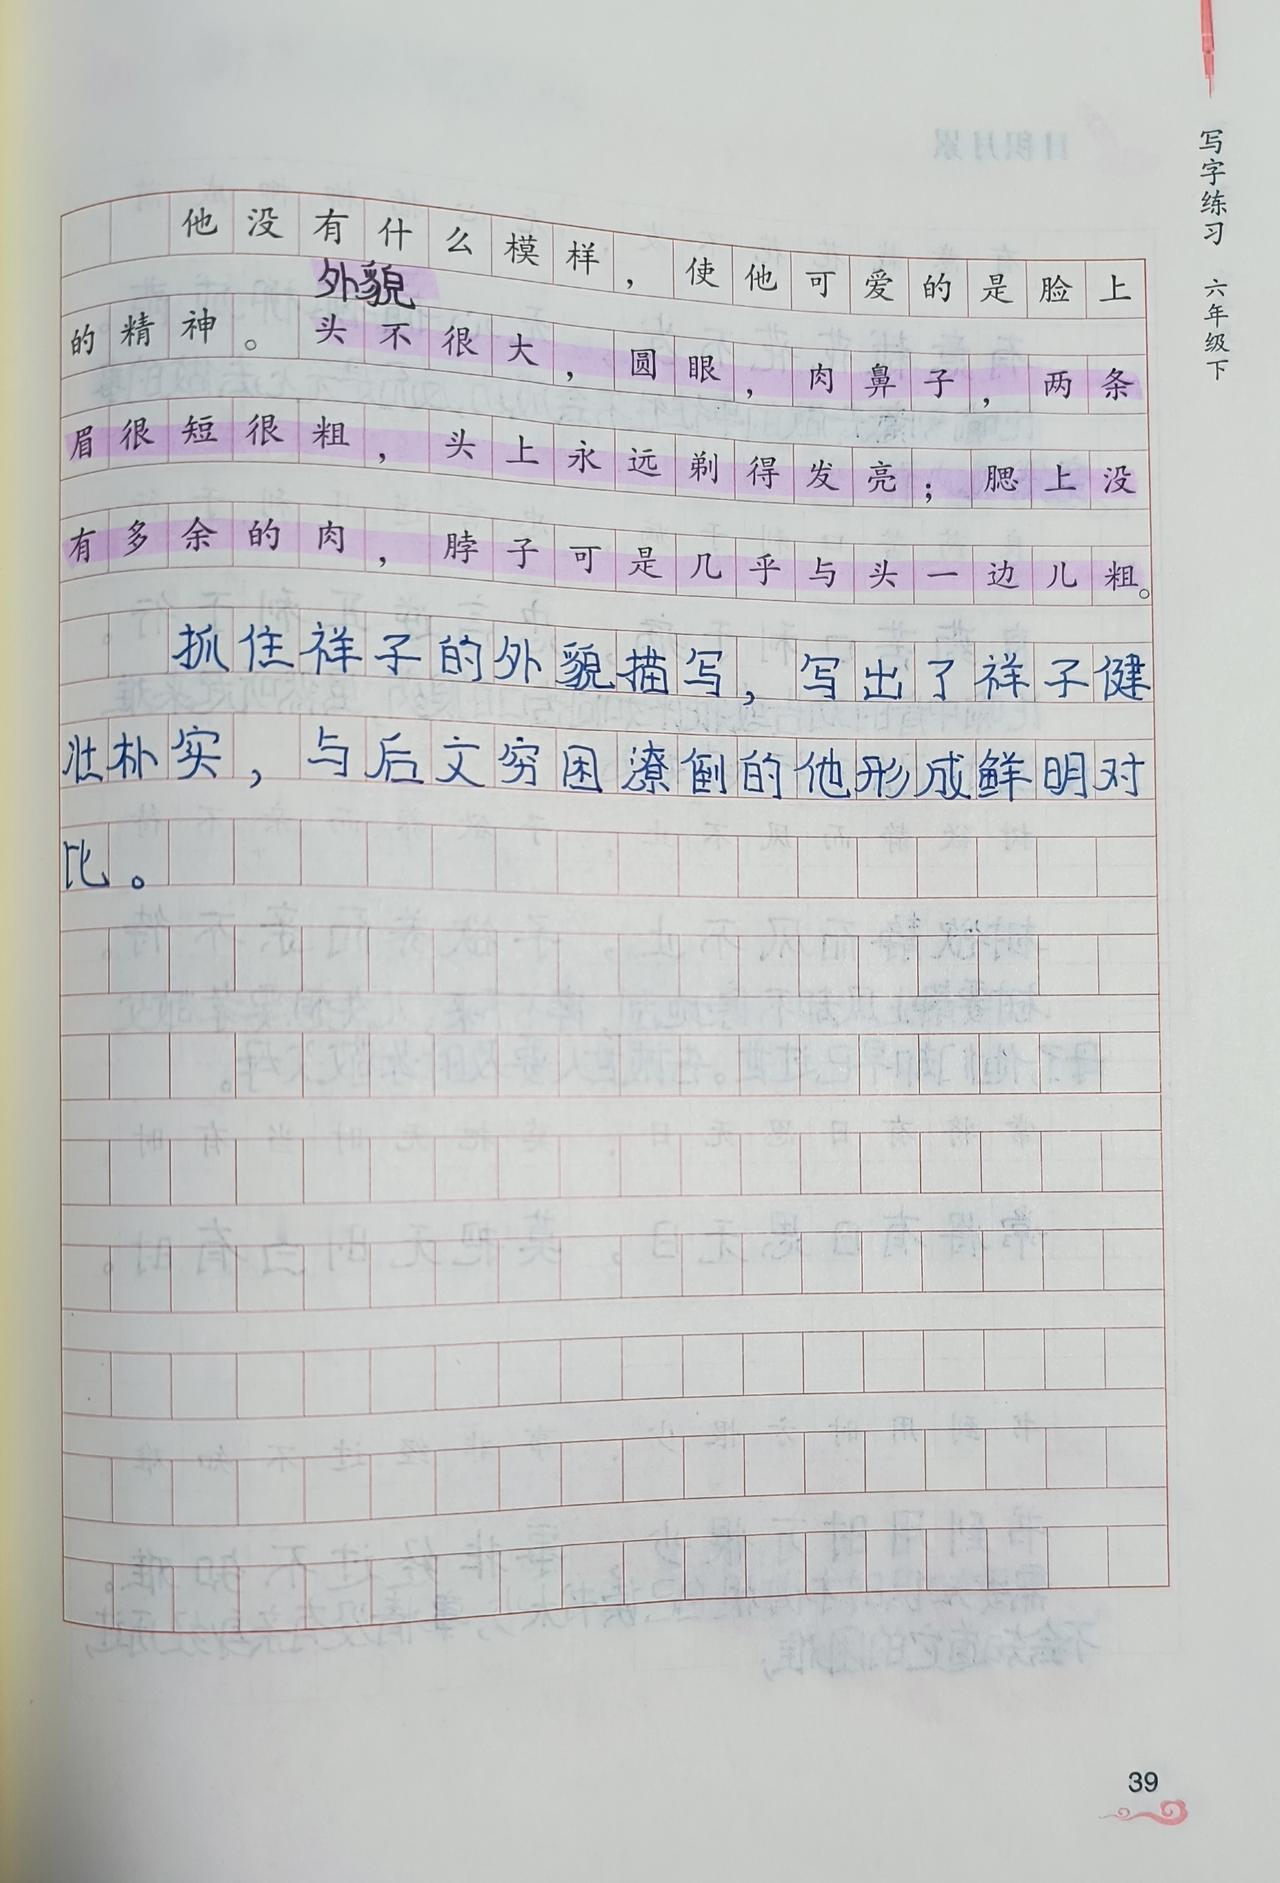 写字练习 六年级下
他没有什么模样，使他可爱的是脸上
外貌
的精神。头不很大，圆眼，肉鼻子，两条
眉很短很粗，头上永远剃得发亮；腮上没
有多余的肉，脖子可是几乎与头一边儿粗。
抓住祥子的外貌描写，写出了祥子健
壮朴实，与后文穷困潦倒的他形成鲜明对
比。
39